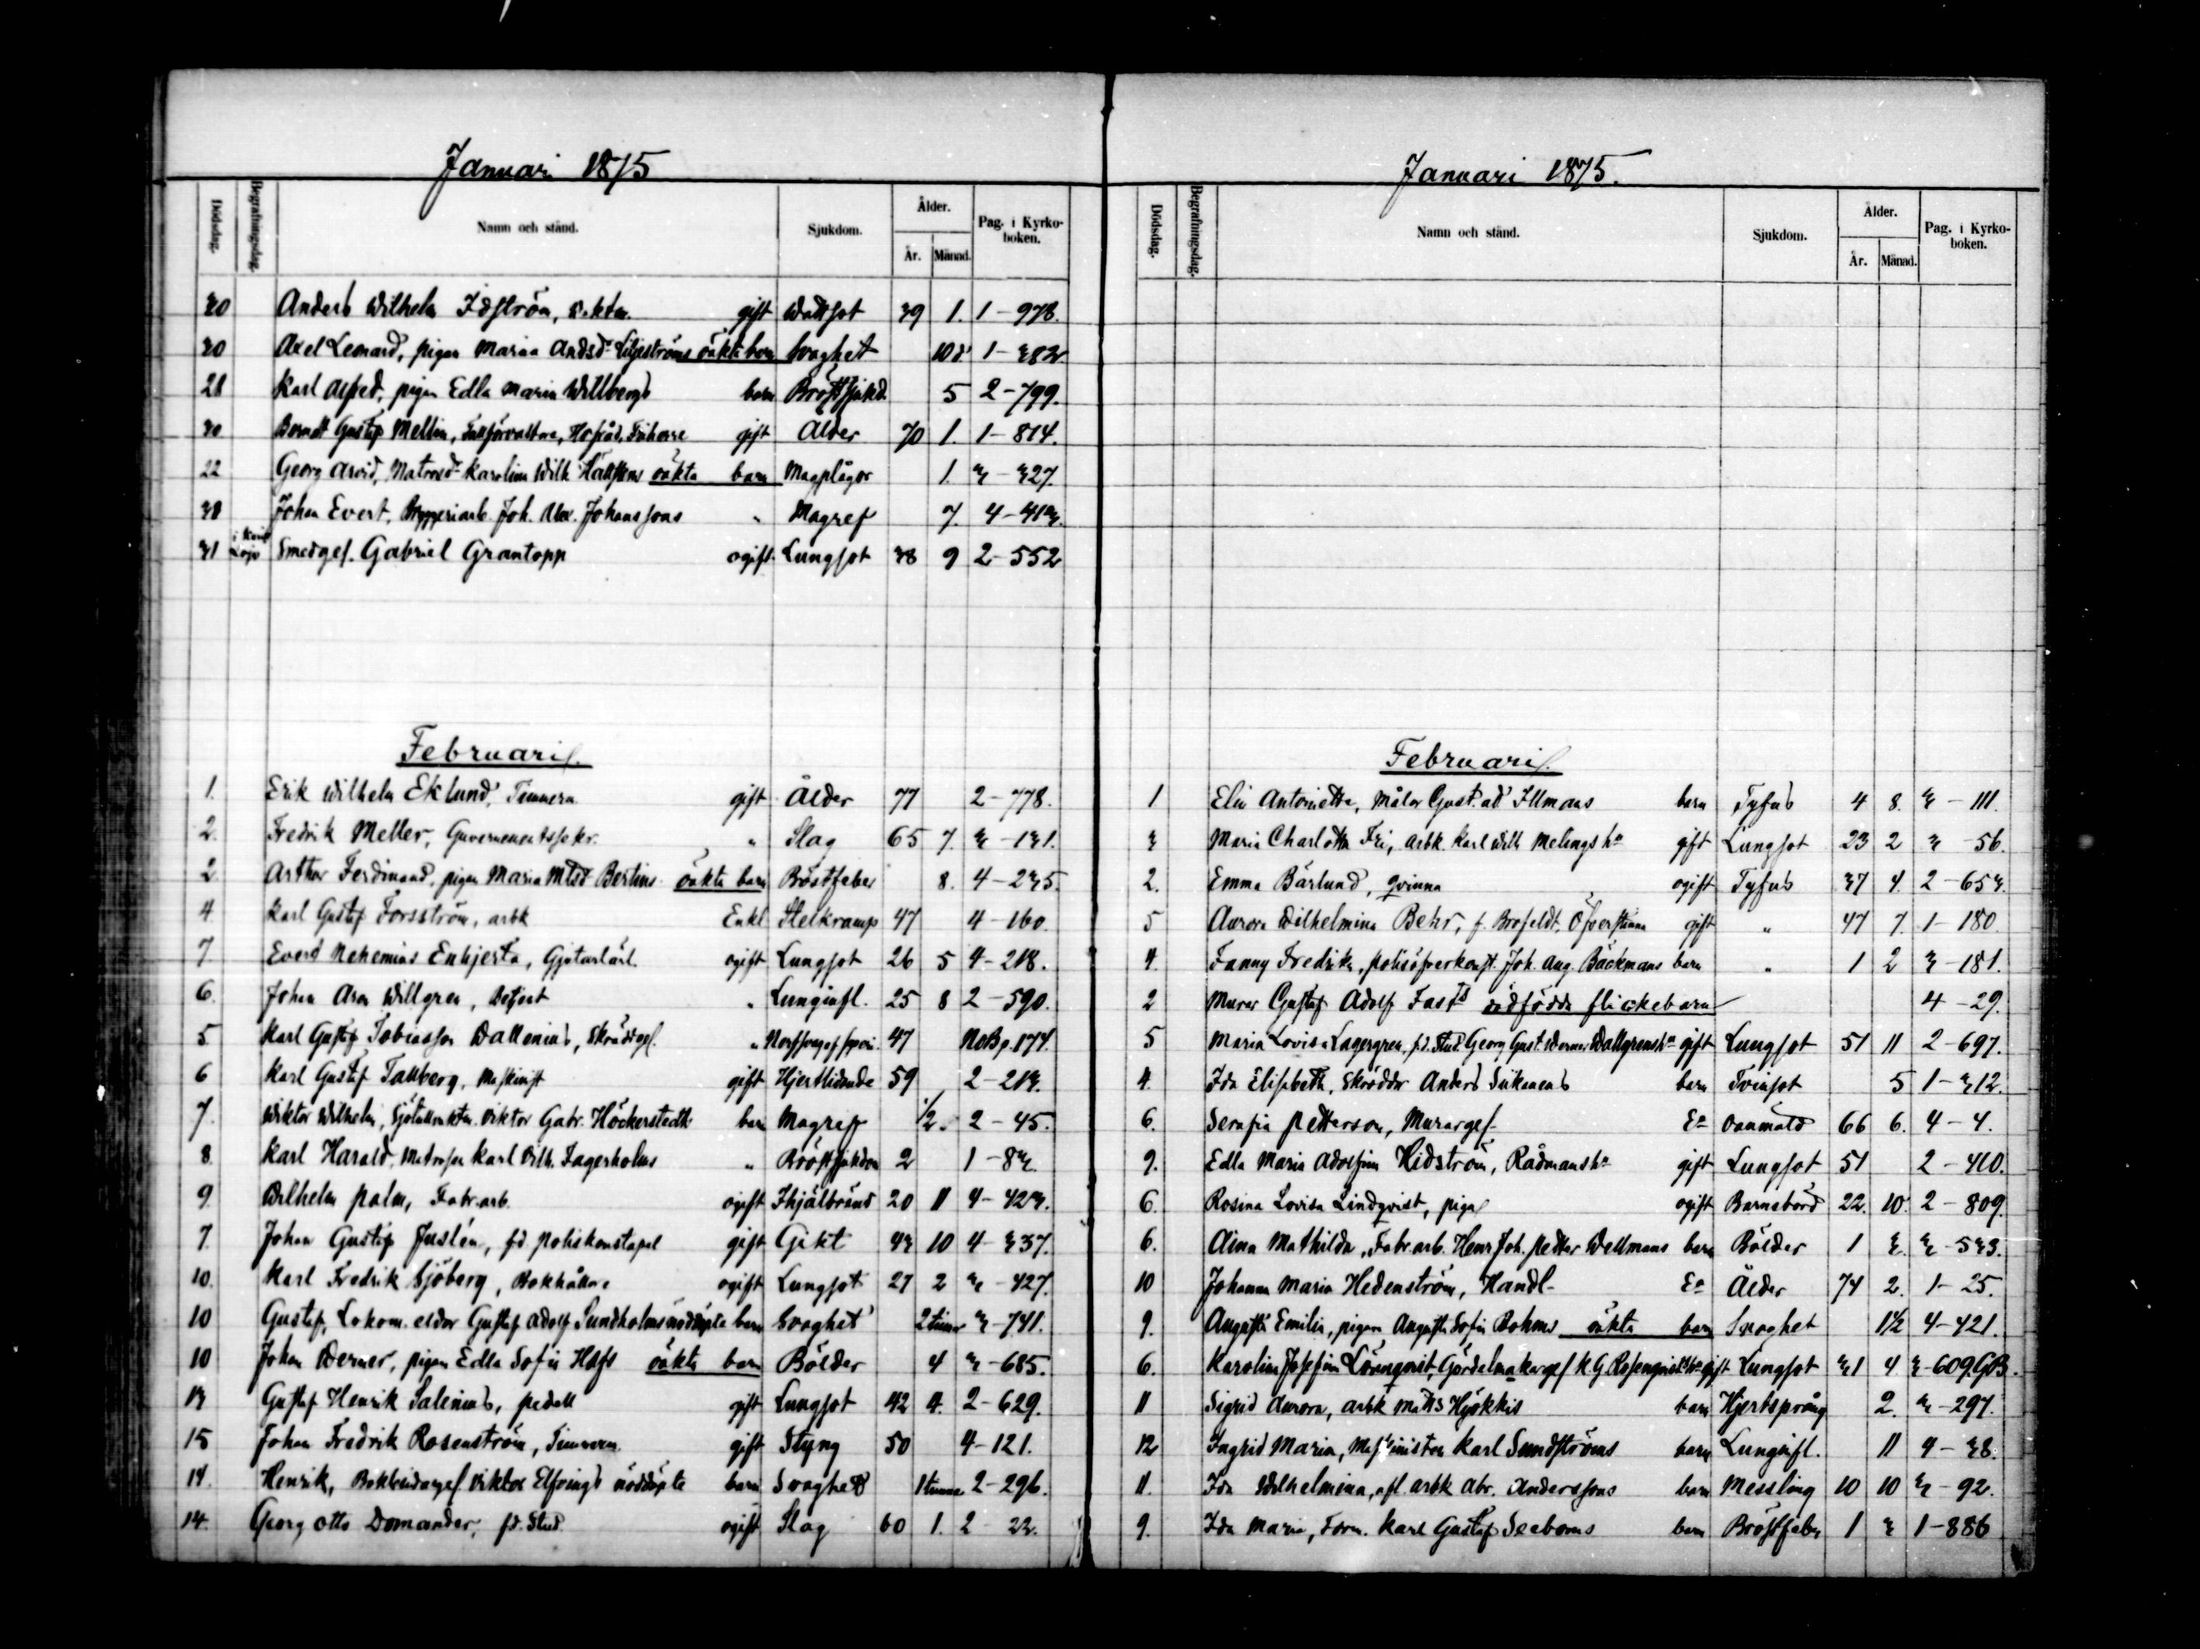 Januari 1875
Dödsdag. Begrafningsdag. Namn och stånd. Sjukdom. Ålder. År. Månad. Pag. i Kyrkoboken.
30 Anders Wilhelm gift Wattsot 39 1. 1-978.
30 Axel Leonard, pigan Maria Andsdr Liljeströms oäkta barn Svaghet 10 d 1-382
28 Karl Alfred, pigan Edla Maria Willbergs barn Bröstsjukd. 5 2-799.
30 Berndt Gustaf Mellin, Tullförvaltare, Hofråd, Friherre gift Ålder 70 1. 1-814.
22 Georg Arvid, Karolina Wilh. oäkta barn Magplågor 1. 3-327.
38 Johan Evert, Bryggeriarb. Joh. Alex. Johanssons " Magref 7. 4-413.
31 i Lojo Smedges. Gabriel Grantopp ogift Lungsot 38 9 2-552
Februari.
1. Erik Wilhelm Eklund, Timmerm. gift Ålder 77 2-778.
2. Fredrik Meller, Guvernementssekr. " Slag 65 7. 3-131.
2. Arthur Ferdinand, pigan Maria Mtsdr Bertins oäkta barn Bröstfeber 8. 4-235.
4. Karl Gustaf Forsström, arbk Enkl. Stelkramp 47 4-160.
7. Everd Nehemias Enhjerta, Gjutarlärl. ogift Lungsot 26 5 4-218.
6. Johan Aron Willgren, Betjent " Lunginfl. 25 8 2-590.
5. Karl Gustaf Tobiasson Dallenius, Skräddges. " 47 NoBp.174.
6 Karl Gustaf Tallberg, Maskinist gift Hjertlidande 59 2-213.
7. Wiktor Wilhelm, Sjötullvaktm. Viktor Gabr. Höckerstedts barn Magref 1/2. 2-45.
8. Karl Harald, Matrosen Karl Vilh. Fagerholms " Bröstsjukdom 2 1-83.
9. Wilhelm Palm, Fabr.arb. ogift Ihjälbränd 20 11 4-423.
7. Johan Gustaf Juslén, f.d. poliskonstapel gift Gikt 43 10 4-337.
10. Karl Fredrik Sjöberg, Bokhållare ogift Lungsot 27 2 3-427.
10 Gustaf, Lokom. eldar Gustaf Adolf Sundholms nöddöpte barn Svaghet 2 timar 3-741.
10 Johan Werner, pigan Edla Sofia oäkta barn Bölder 4 3-685.
13 Gustaf Henrik Salenius, pedell gift Lungsot 42 4. 2-629.
15 Johan Fredrik Rosenström, Timmerm. gift Styng 50 4-121.
14. Henrik, Viktor Elfvings nöddöpte barn Svaghet 1 timma 2-296.
14. Georg Otto Domander, f.d. Stud. ogift Slag 60 1. 2-22.
Januari 1875.
Dödsdag. Begrafningsdag. Namn och stånd. Sjukdom. Ålder. År. Månad. Pag. i Kyrkoboken.
Februari.
1 Elin Antonietta, Målar Gust. Ad. Illmans barn Tyfus 4 8. 3-111.
3 Maria Charlotta Fri, arbk. Karl Wilh. Melings ha gift Lungsot 23 2 3-56.
2. Emma Bärlund, qvinna ogift Tyfus 37 4. 2-653.
5 Aurora Wilhelmina Behr, f. Brofeldt, Öfverstinna gift " 47 7. 1-180.
4. Fanny Fredrika, polisöfverkonst. Joh. Aug. Bäckmans barn " 1 2 3-181.
2 Murar Gustaf Adolf Fasts dödfödda flickebarn 4-29.
5 Maria Lovisa Lagergren, f.d. Stud. Georg Gust. Werner Dallgrens ha gift Lungsot 51 11 2-697.
4. Ida Elisabeth, Skräddar Anders barn Tvinsot 5 1-312.
6. Serafia Petterson, Murarges. Ea 66 6. 4-4.
9. Edla Maria Adolfina Hidström, Rådmans ha gift Lungsot 51 2-410.
6. Rosina Lovisa Lindqvist, piga ogift Barnsbörd 22. 10. 2-809.
6. Aina Mathilda, Fabr.arb. Henr. Joh. Petter Wellmans barn Bölder 1 3. 3-533.
10 Johanna Maria Hedenström, Handl. Ea Ålder 74 2. 1-25.
9. Augusta Emilia, pigan Augusta Sofia Bohms oäkta barn Svaghet 1 1/2 4-421.
6. Karolina Josefina Lövenqvist, Gördelmakarges. K G Rosenqvists ha gift Lungsot 31 4. 3-609.GB.
11 Sigrid Aurora, arbk Matts Hyökkis barn Hjertsprång 2. 3-297.
12 Ingrid Maria, Maskinisten Karl Sundströms barn Lunginfl. 11 4-38.
11. Ida Wilhelmina, afl. arbk Abr. Anderssons barn Messling 10 10 3-92.
9. Ida Maria, Form. Karl Gustaf Seeboms barn Bröstfeber 1 3 1-886